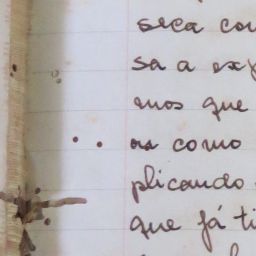 seca com
sa a exp
mos que
as como
plicando
que já ti